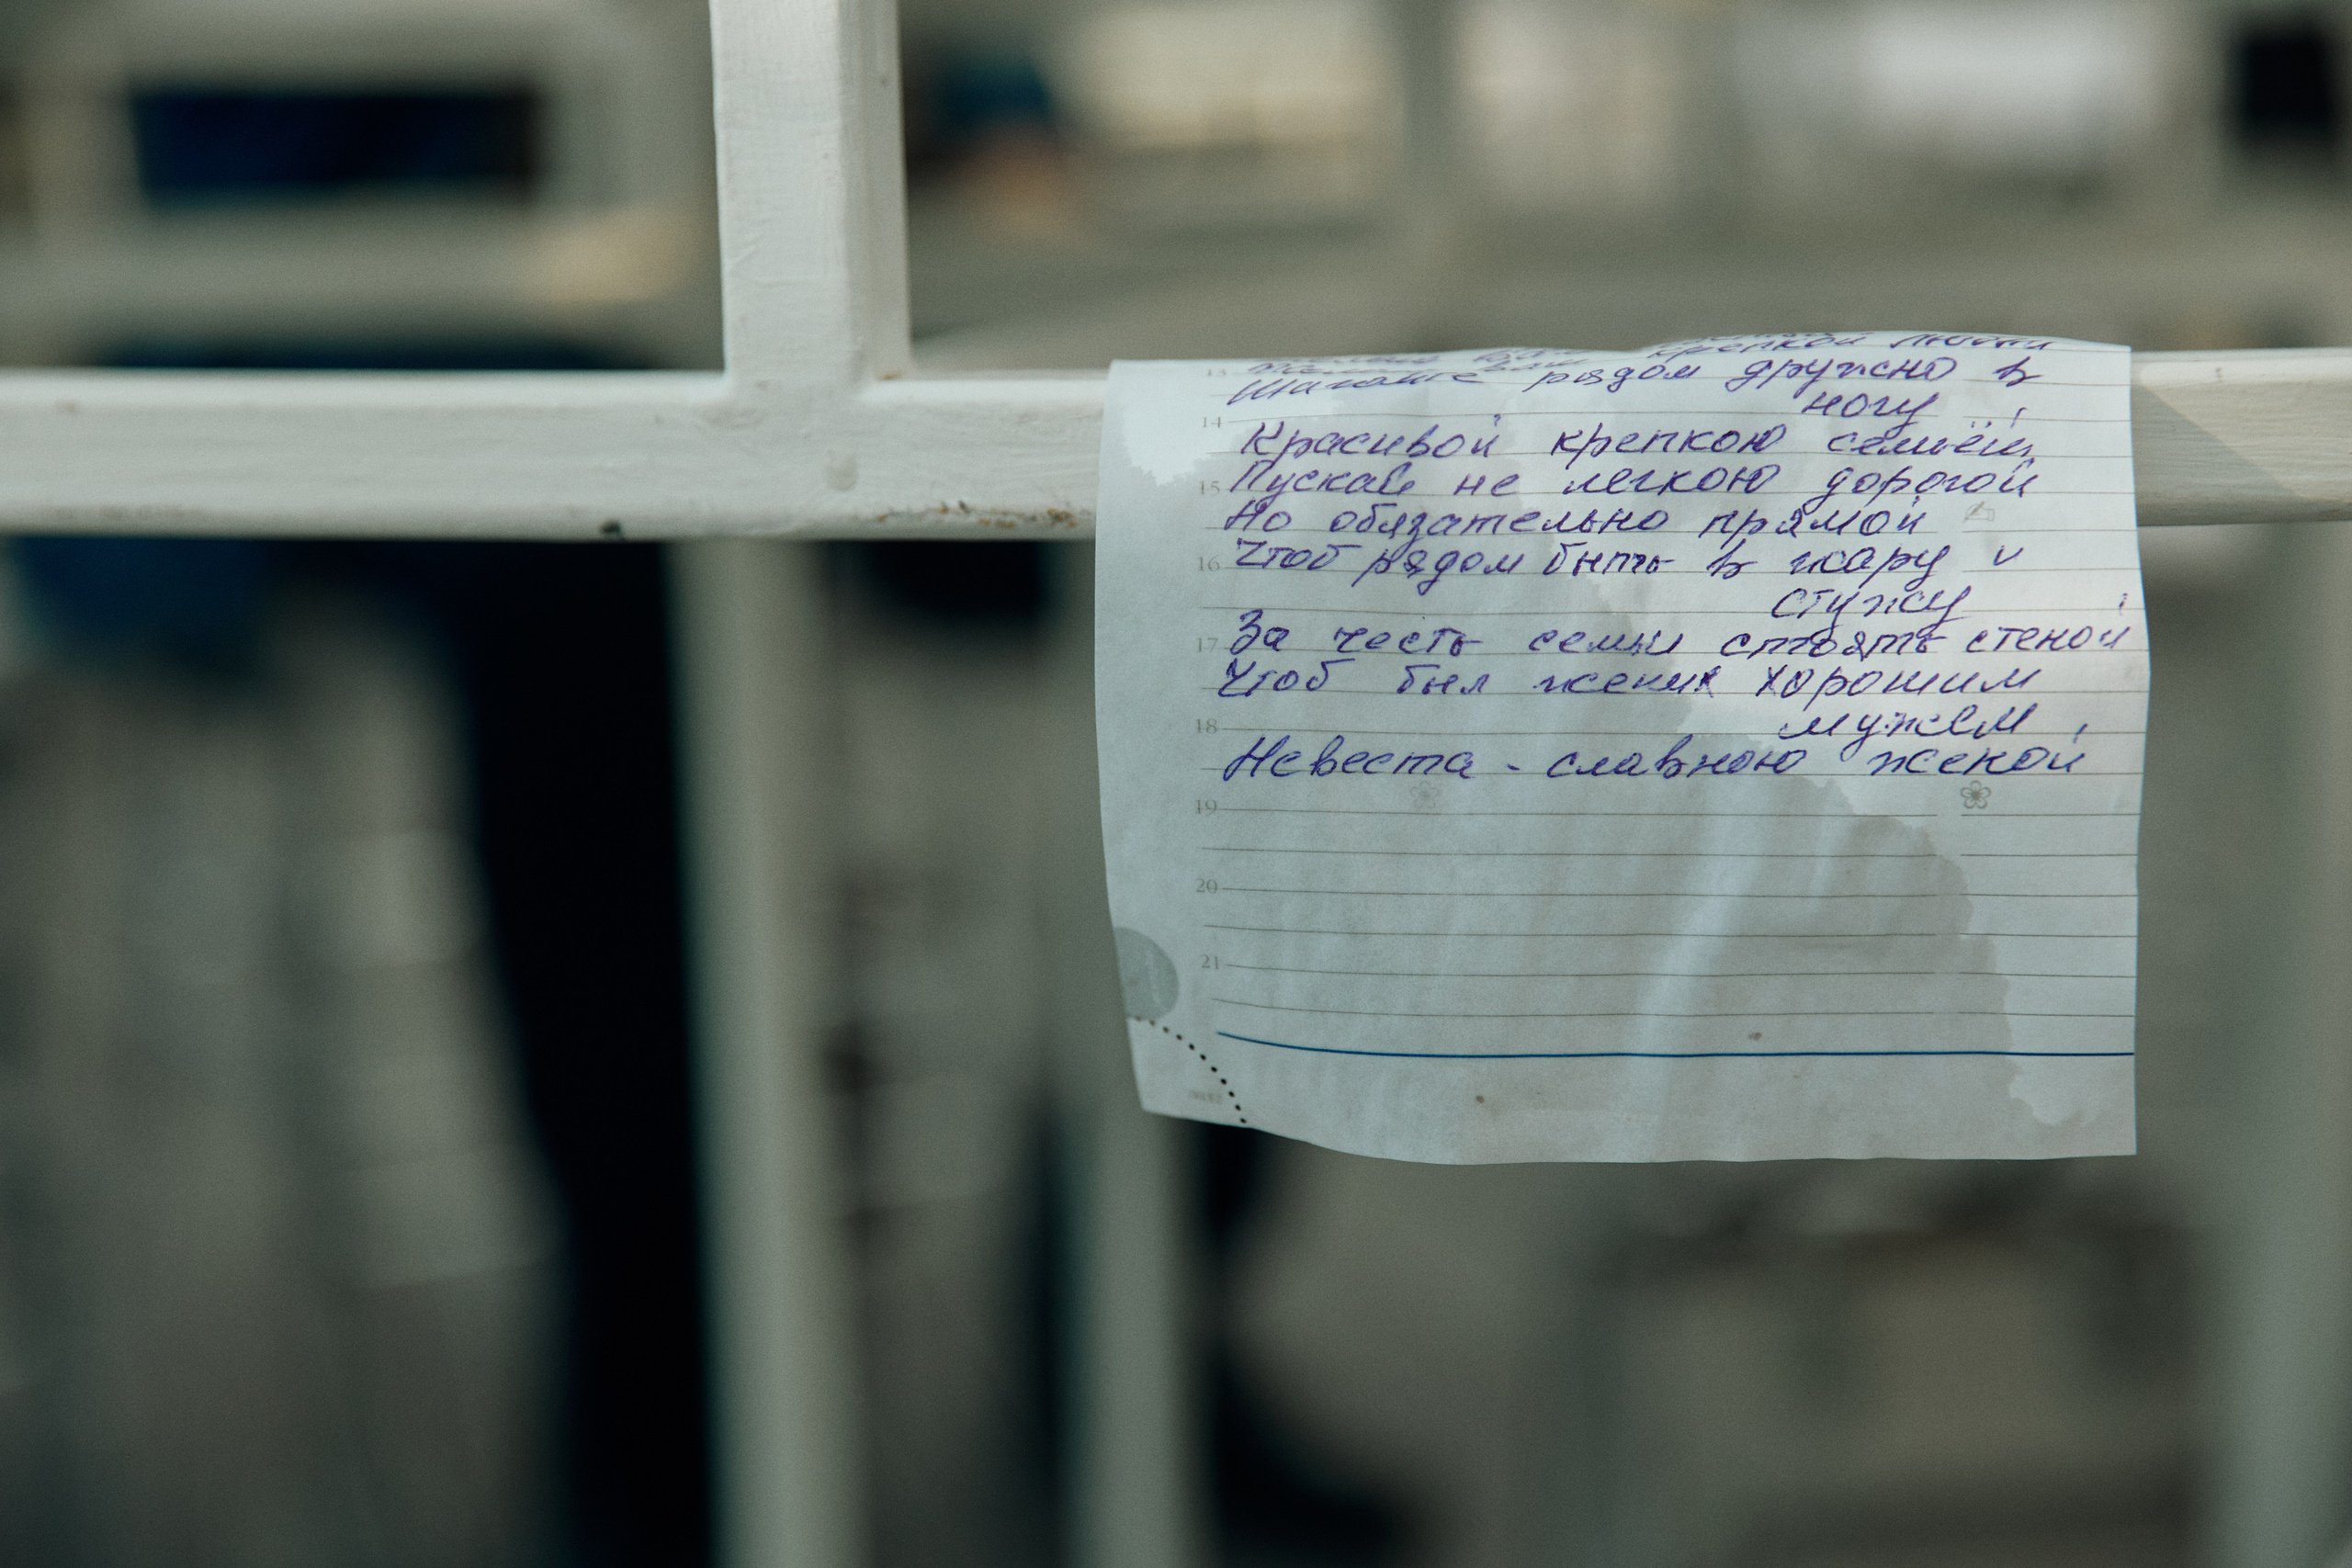 крепкой
13 Шагайте рядом дружно в
ногу,
14
Красивой крепкою семьёй,
15 Пускай не легкою дорогой
Но обязательно прямой
16 Чтоб рядом быть в жару и
стужу,
17 За честь семьи стоять стеной
Чтоб был жених хорошим
18 мужем,
Невеста - славною женой
19
20
21